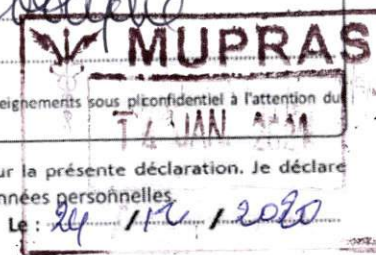 MUPRAS
eignements sous pli confidentiel à l'attention du
14 JAN 2021
ur la présente déclaration. Je déclare
nnées personnelles
Le : 24 / 12 / 2020